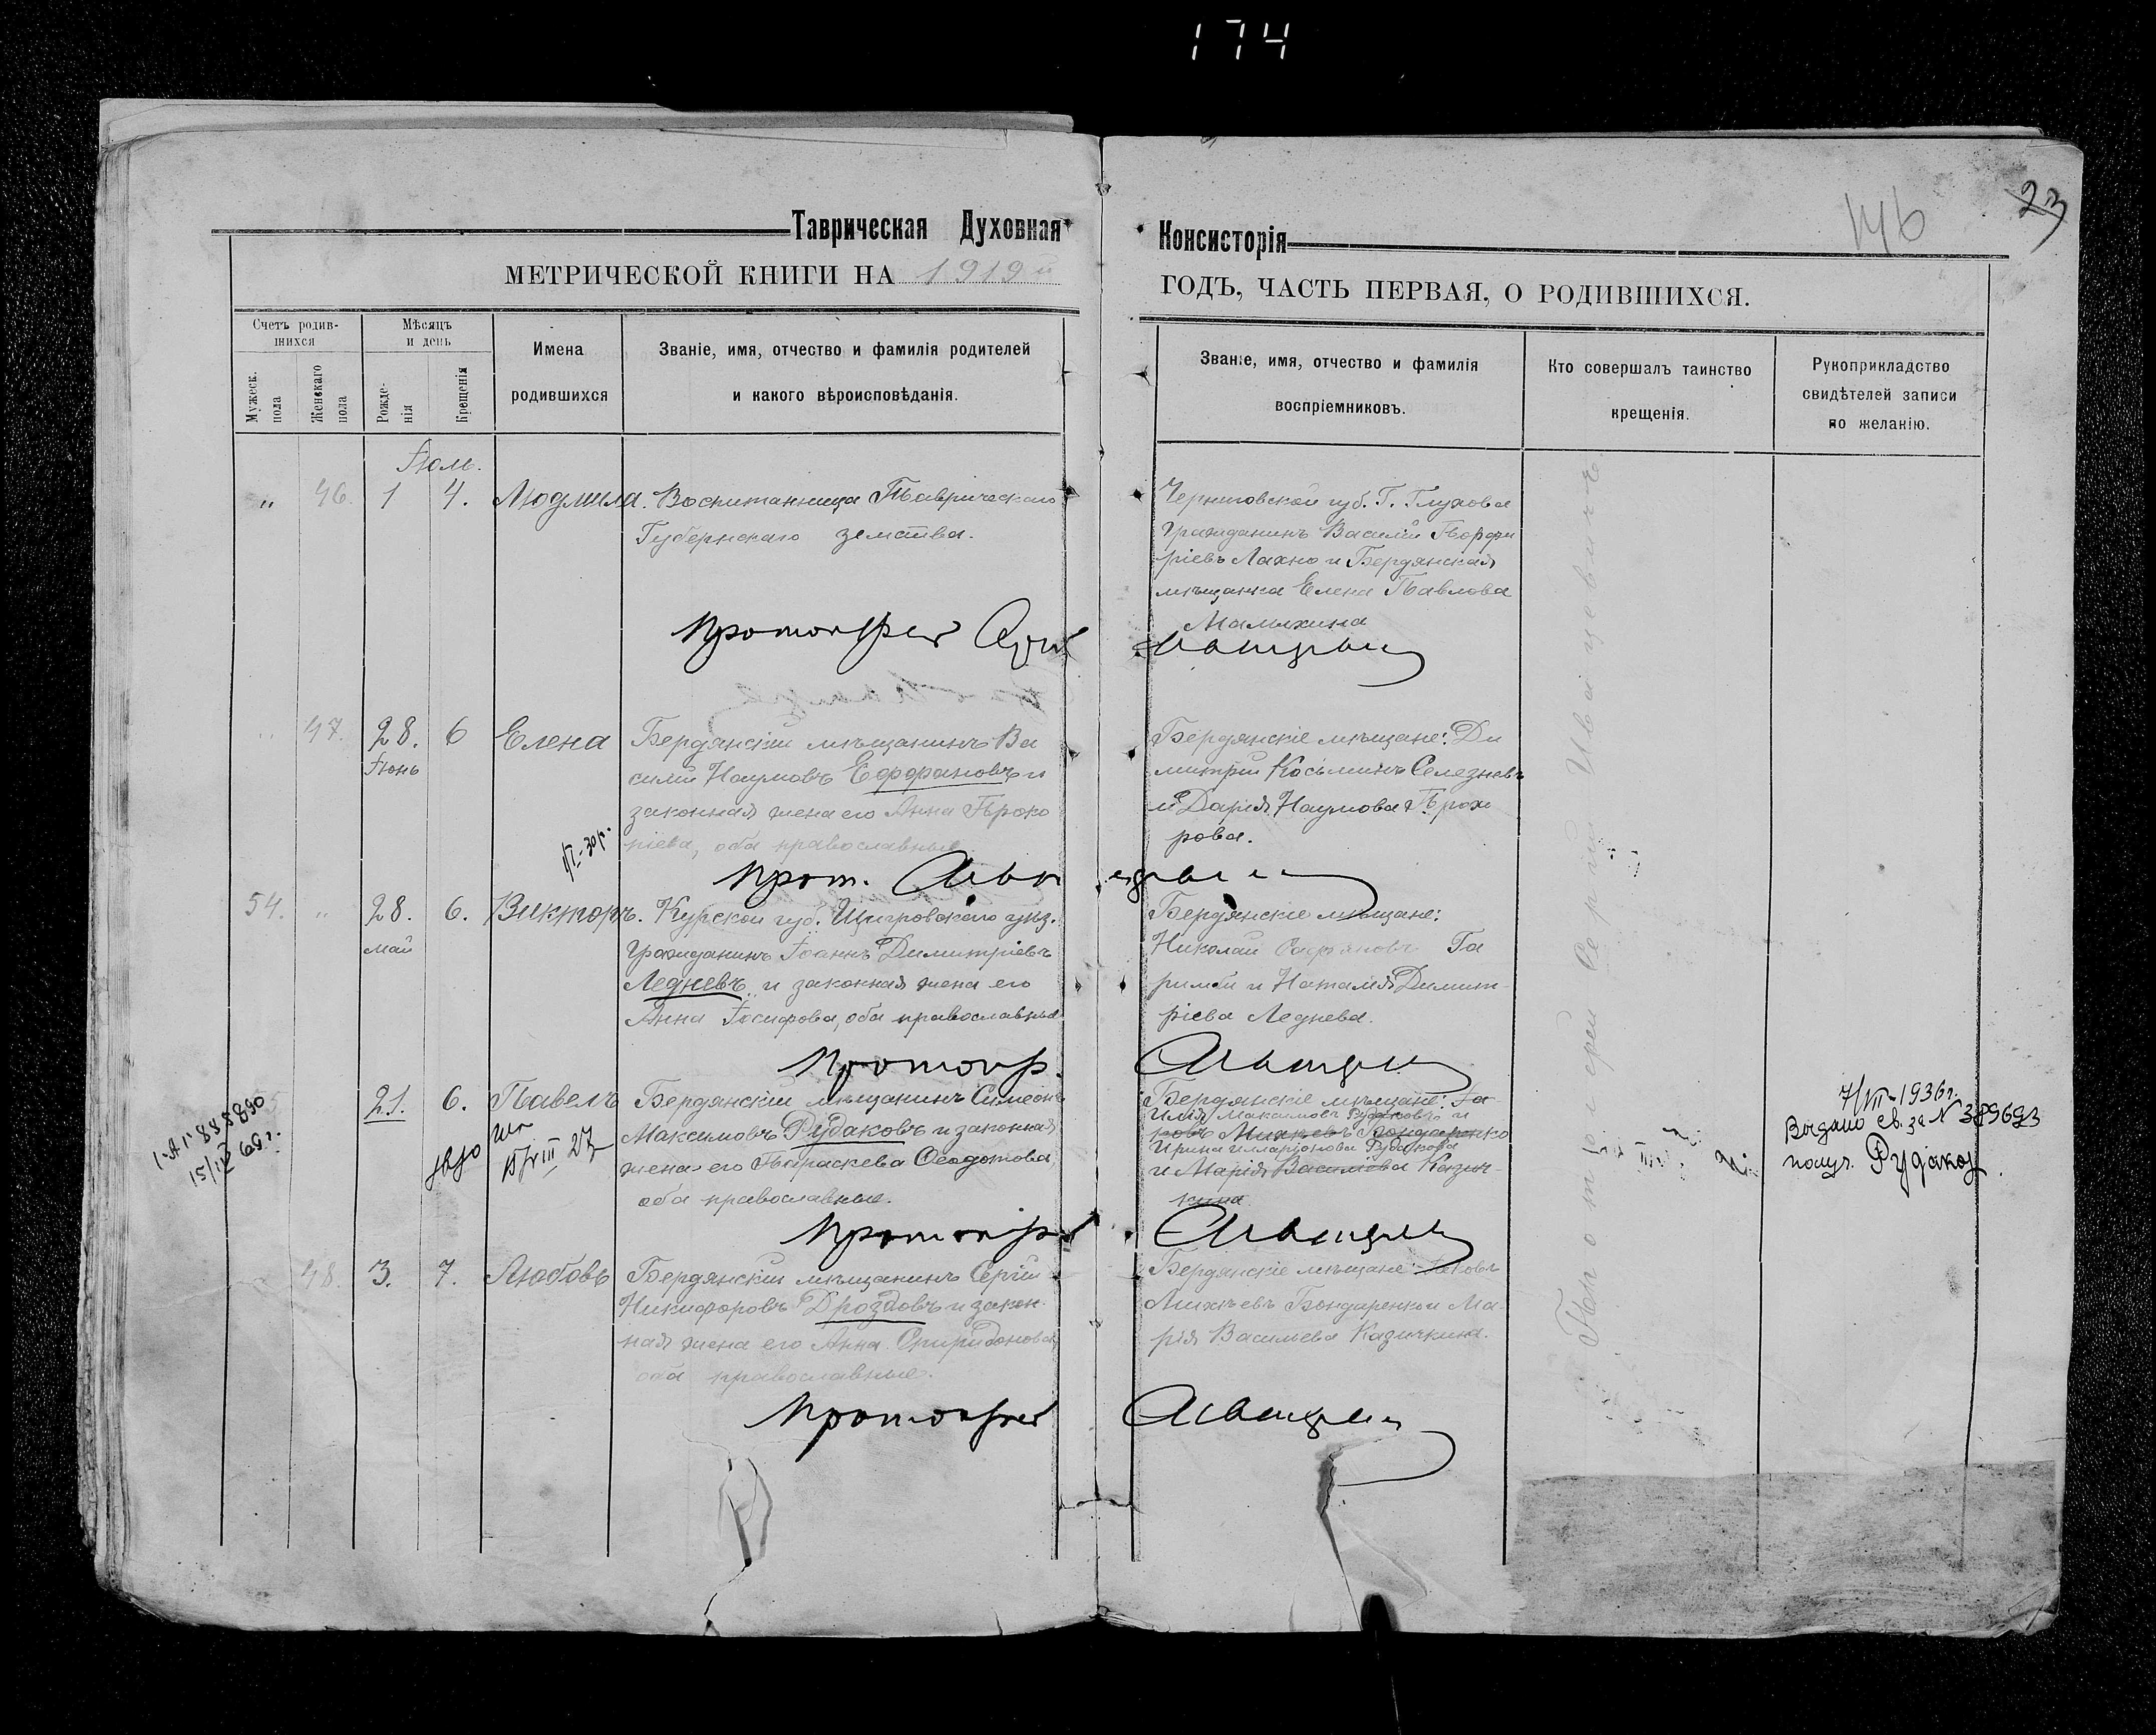 174
146
23
Таврическая Духовная
Консисторія
МЕТРИЧЕСКОЙ КНИГИ НА 1919й
ГОДЪ, ЧАСТЬ ПЕРВАЯ, О РОДИВШИХСЯ.
Счетъ родив-
шихся
Мѣсяцъ
и день
Имена
родившихся
Званіе, имя, отчество и фамилія родителей
и какого вѣроисповѣданія.
Мужеск.
пола
Женскаго
пола
Рожде-
нія
Крещенія
Званіе, имя, отчество и фамилія
воспріемниковъ.
Кто совершалъ таинство
крещенія.
Рукоприкладство
свидѣтелей записи
по желанію.
Іюль.
" 46. 1 4. Людмила. Воспитанница Таврическаго
Губернскаго земства.
Черниговской губ. Г. Глухова
гражданинъ Василій Порфи
ріевъ Лахно и Бердянская
мѣщанка Елена Павлова
Малыхина
Протоіерей
" 47. 28. 6 Елена Бердянскій мѣщанинъ Ва
Іюнь
силій Наумовъ Еффановъ и
законная жена его Анна Проко
піева, оба православные.
Бердянскіе мѣщане: Ди
митрій Косьминъ Селезневъ
и Дарія Наумова Прохо
рова.
Прот.
54. " 28. 6. Викторъ. Курской губ. Щигровскаго уѣз.
май
гражданинъ Іоаннъ Димитріевъ
Ледневъ и законная жена его
Анна Іосифова, оба православные
Бердянскіе мѣщане:
Николай
и Наталія Димит-
ріева Леднева.
Протоіер.
21. 6. Павелъ Бердянскій мѣщанинъ Симеонъ
Максимовъ Рудаковъ и законная
жена его Параскева Ѳеодотова,
оба православные.
Бердянскіе мѣщане: Іа-
Илія Максимовъ Рудаковъ и
ковъ Михѣевъ Бондаренко
Ирина Иларіонова Рудакова
и Марія Васильева Казич-
кина
15/VIII 27
15/IV 69г.
7/VII-1936г.
Выдано св. за N 389693
получ. Рудаков
Протоіер
48. 3. 7. Любовь Бердянскій мѣщанинъ Сергій
Никифоровъ Дроздовъ и закон-
ная жена его Анна Спиридонова,
оба православные.
Бердянскіе мѣщане: Іаковъ
Михѣевъ Бондаренко и Ма-
рія Васильева Казичкина.
Протоіерей
Протоіерей Сергій Ивацевичъ